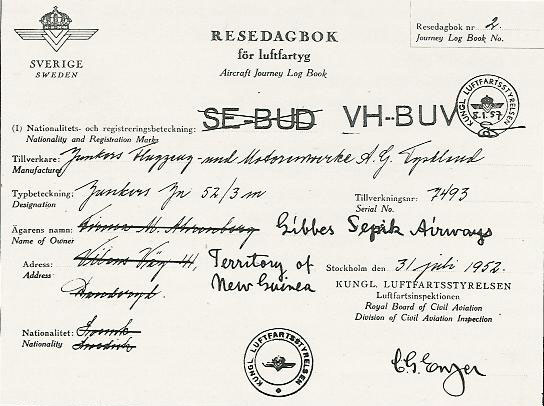 SVERIGE
SWEDEN
RESEDAGBOK
för luftfartyg
Aircraft Journey Log Book
Resedagbok nr 2.
Journey Log Book No.
(I) Nationalitets- och registreringsbeteckning: SE-BUD VH-BUV
Nationality and Registration Marks
KUNGL. LUFTFARTSSTYRELSEN
Tillverkare: Junkers Flugzeug- und Motorenwerke A.G. Tyskland
Manufacturer
Typbeteckning: Junkers Ju 52/3 m
Designation
Tillverkningsnr: 7493
Serial No.
Ägarens namn: Firma M. Ahrenberg Gibbes Sepik Airways
Name of Owner
Adress: Territory of
Address New Guinea
Stockholm den 31 juli 1952.
KUNGL. LUFTFARTSSTYRELSEN
Luftfartsinspektionen
Royal Board of Civil Aviation
Division of Civil Aviation Inspection
Nationalitet: Svensk
Nationality Swedish
KUNGL. LUFTFARTSSTYRELSEN